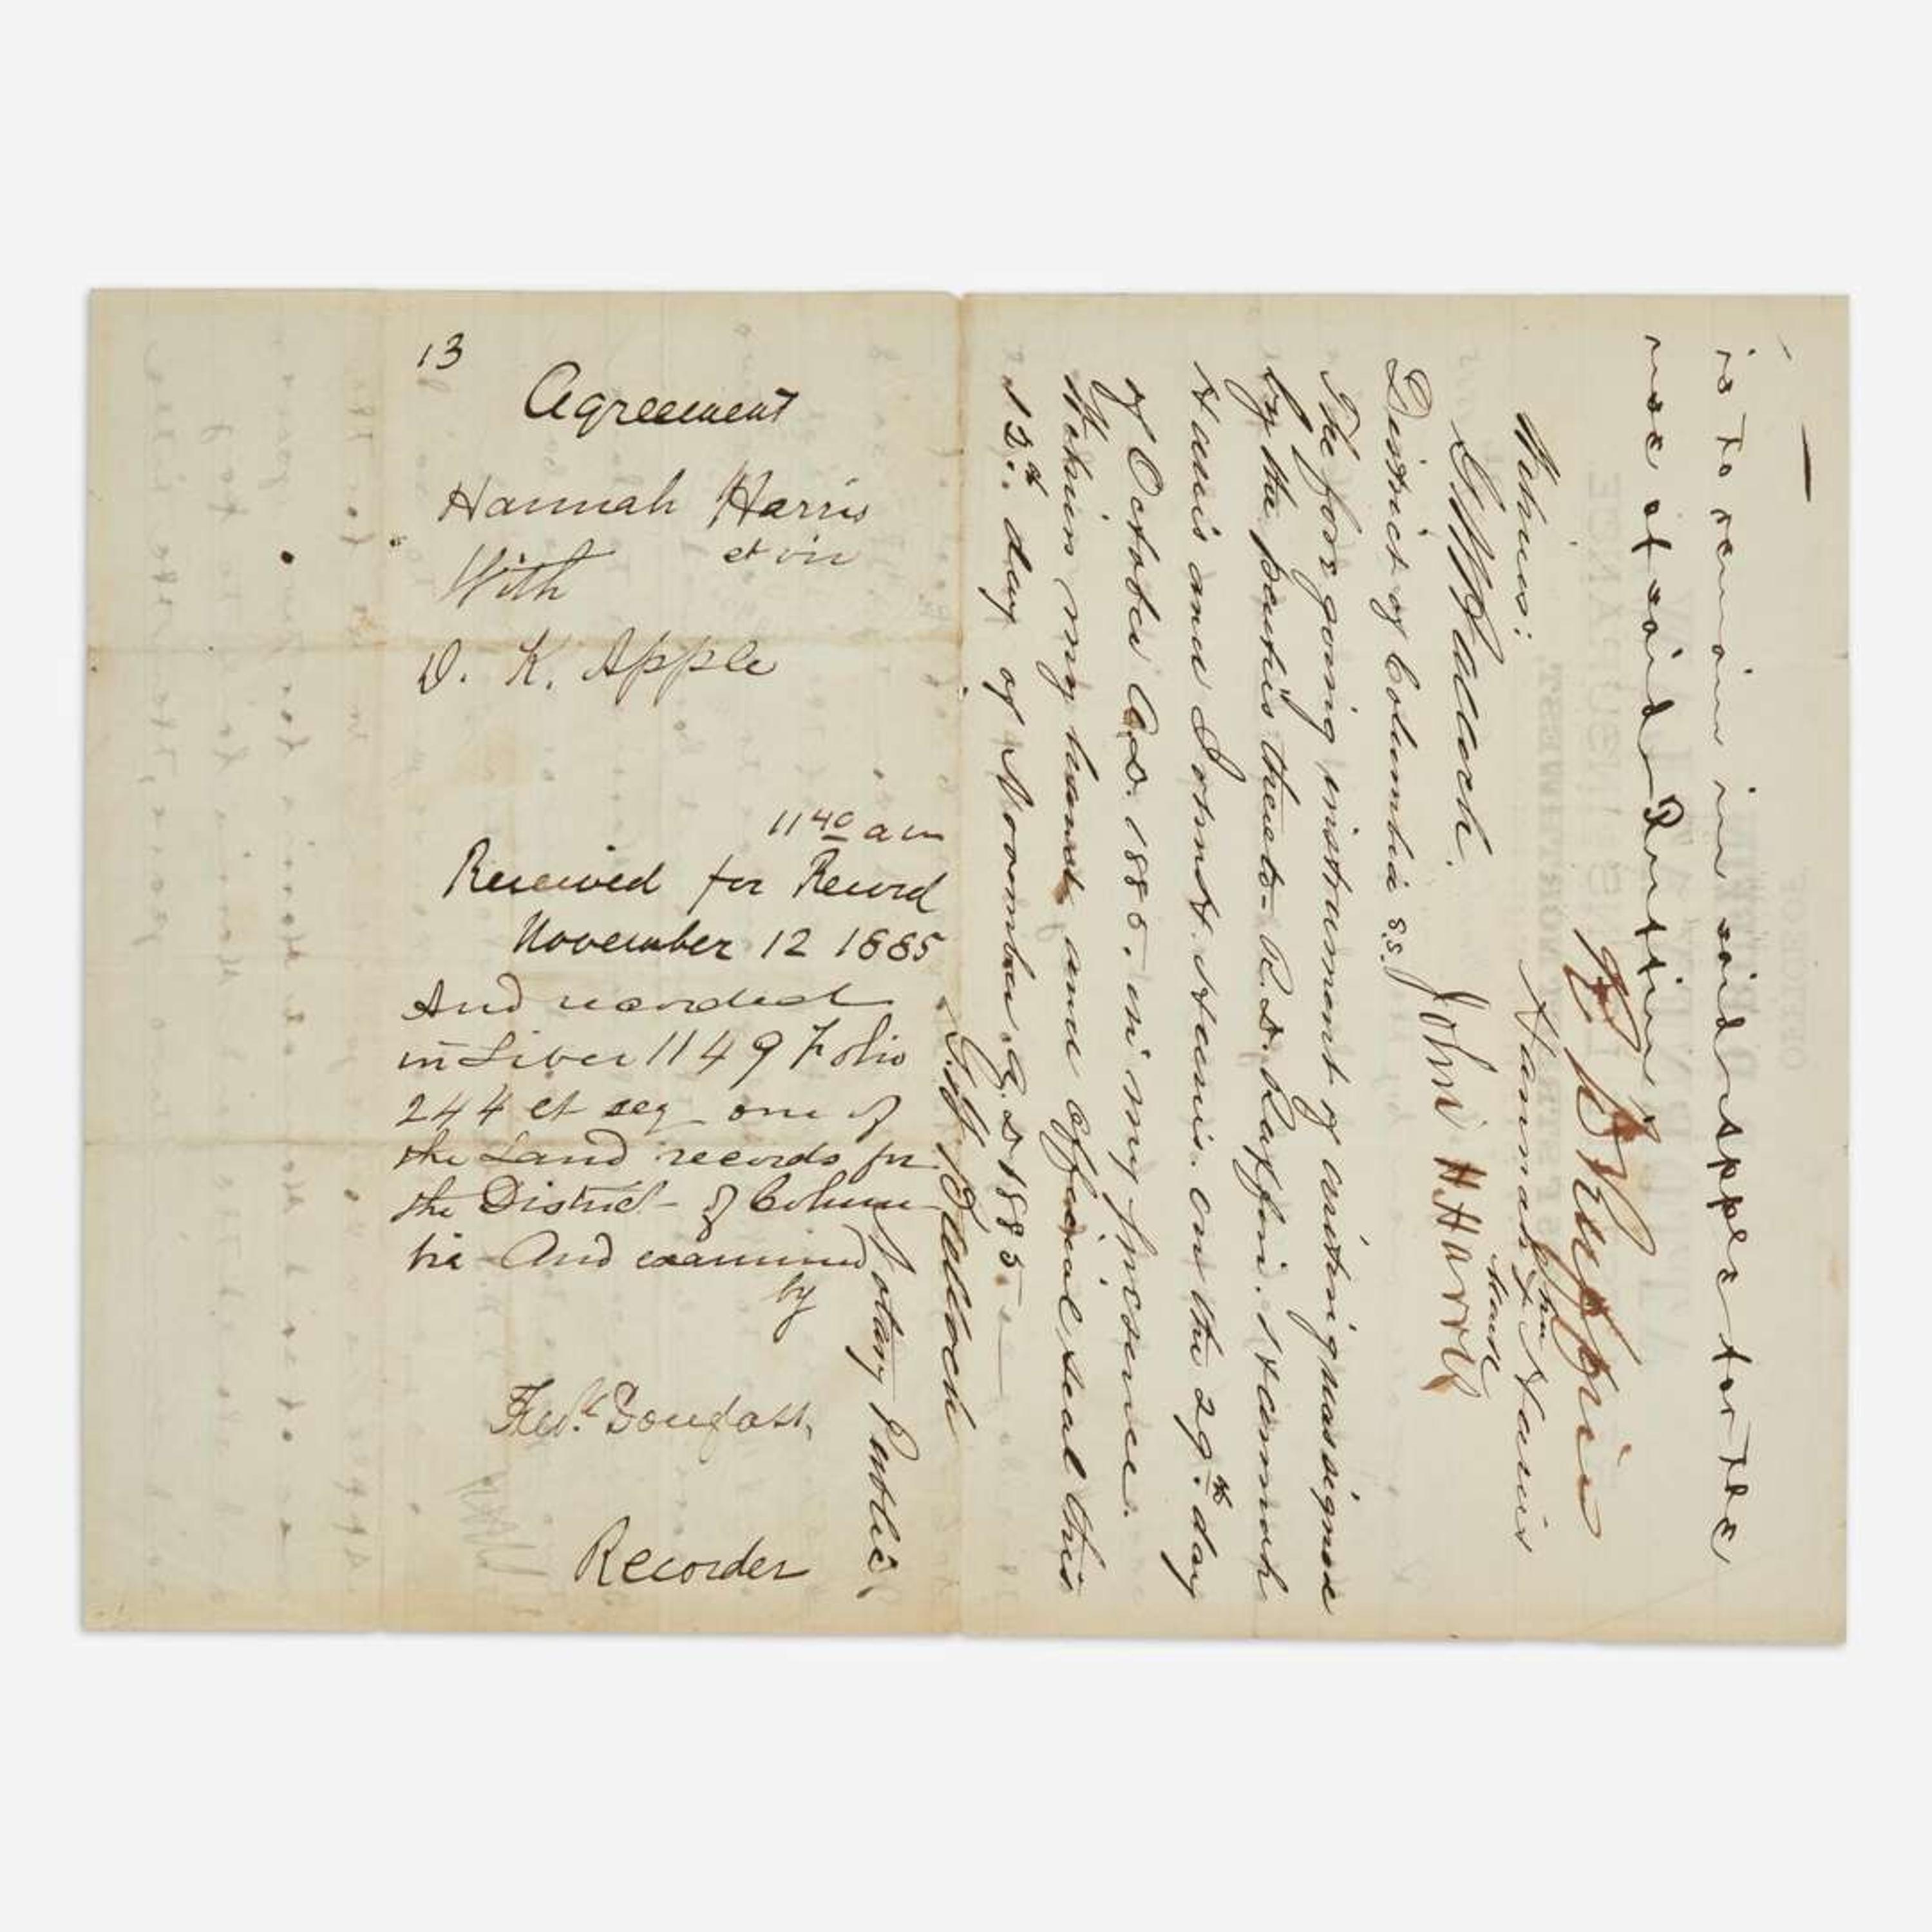 13
Agreement
Hannah Harris
et vir
With
D. K. Apple
11 40 a m
Received for Record
November 12 1885
And recorded
in Liber 1149 Folio
244 et seq one of
the Land records for
the District of Colum
bia And examined
by
Fredk Douglass,
Recorder
is to remain in said Apple for the
use of said
Witness:
G W Balloch.
Hannah her x mark Harris
John H Harris
District of Columbia s.s.
The fore going instrument of writing was signed
by the parties thereto- R. D. Ruffin. Hannah
Harris and John H Harris. on the 29th day
of October A.D. 1885. in my presence.
Witness my hand and official seal this
12th. day of November A. D 1885
G. W. Balloch
Notary Public